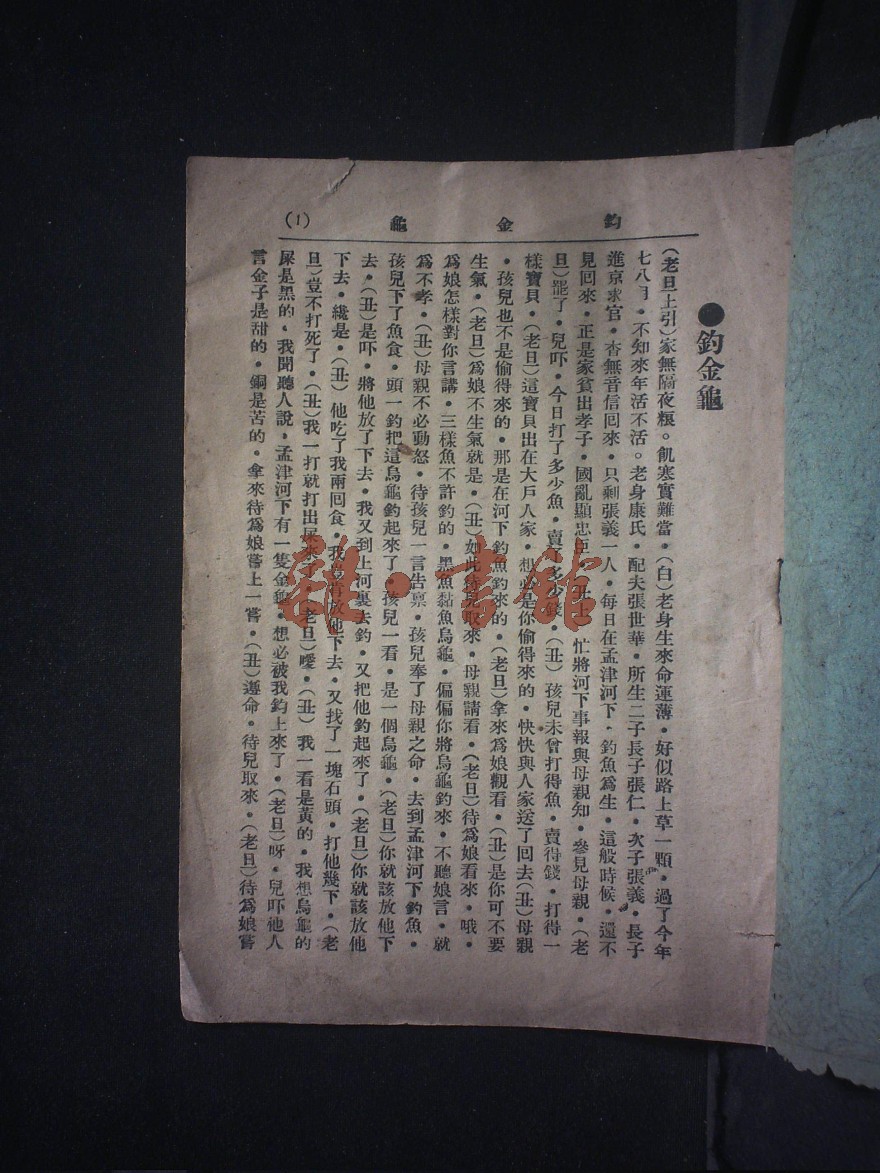 釣金龜
(1)
●釣金龜
（老旦上引）家無隔夜糧。飢寒實難當•（白）老身生來命運薄•好似路上草一顆•過了今年
七八月•不知來年活不活。老身康氏•配夫張世華•所生二子長子張仁•次子張義•長子
進京求官•杳無音信回來•只剩張義一人•每日在孟津河下•釣魚爲生•這般時候•還不
見回來•正是家貧出孝子•國亂顯忠臣•（丑上）忙將河下事報與母親知•參見母親•（老
旦）罷了•兒吓•今日打了多少魚•賣了多少錢•（丑）孩兒未曾打得魚•賣得錢•打得一
樣寶貝•（老旦）這寶貝出在大戶人家•想必是你偷得來的•快快與人家送了回去（丑）母親
•孩兒也不是偷得來的•那是在河下釣魚釣來的•（老旦）拿來爲娘觀看•（丑）是你可不要
生氣•（老旦）爲娘不生氣就是•（丑）如此待兒取來•母親請看•（老旦）待爲娘看來•哦•
爲娘怎樣對你言講•三樣魚不許釣的•黑魚黏魚烏龜•偏偏你將烏龜釣來•不聽娘言•就
爲不孝•（丑）母親不必動怒•待孩兒一言告禀•孩兒奉了母親之命•去到孟津河下釣魚•
孩兒下了魚食•頭一釣把這烏龜釣起來了•孩兒一看•是一個烏龜•（老旦）你就該放他下
去•（丑）是吓•將他放了下去•我又到上河裏去釣•又把他釣起來了•（老旦）你就該放他
下去•纔是•（丑）他吃了我兩回食•我豈肯放他下去•又找了一塊石頭•打他幾下•（老
旦）豈不打死了•（丑）我一打就打出尿來了•（老旦）噯•（丑）我一看是黃的•我想烏龜的
尿是黑的•我聞聽人說•孟津河下有一隻金龜•想必被我釣上來了•（老旦）呀•兒吓他人
言金子是甜的•銅是苦的•拿來待爲娘嘗上一嘗•（丑）遵命•待兒取來•（老旦）待爲娘嘗
書館